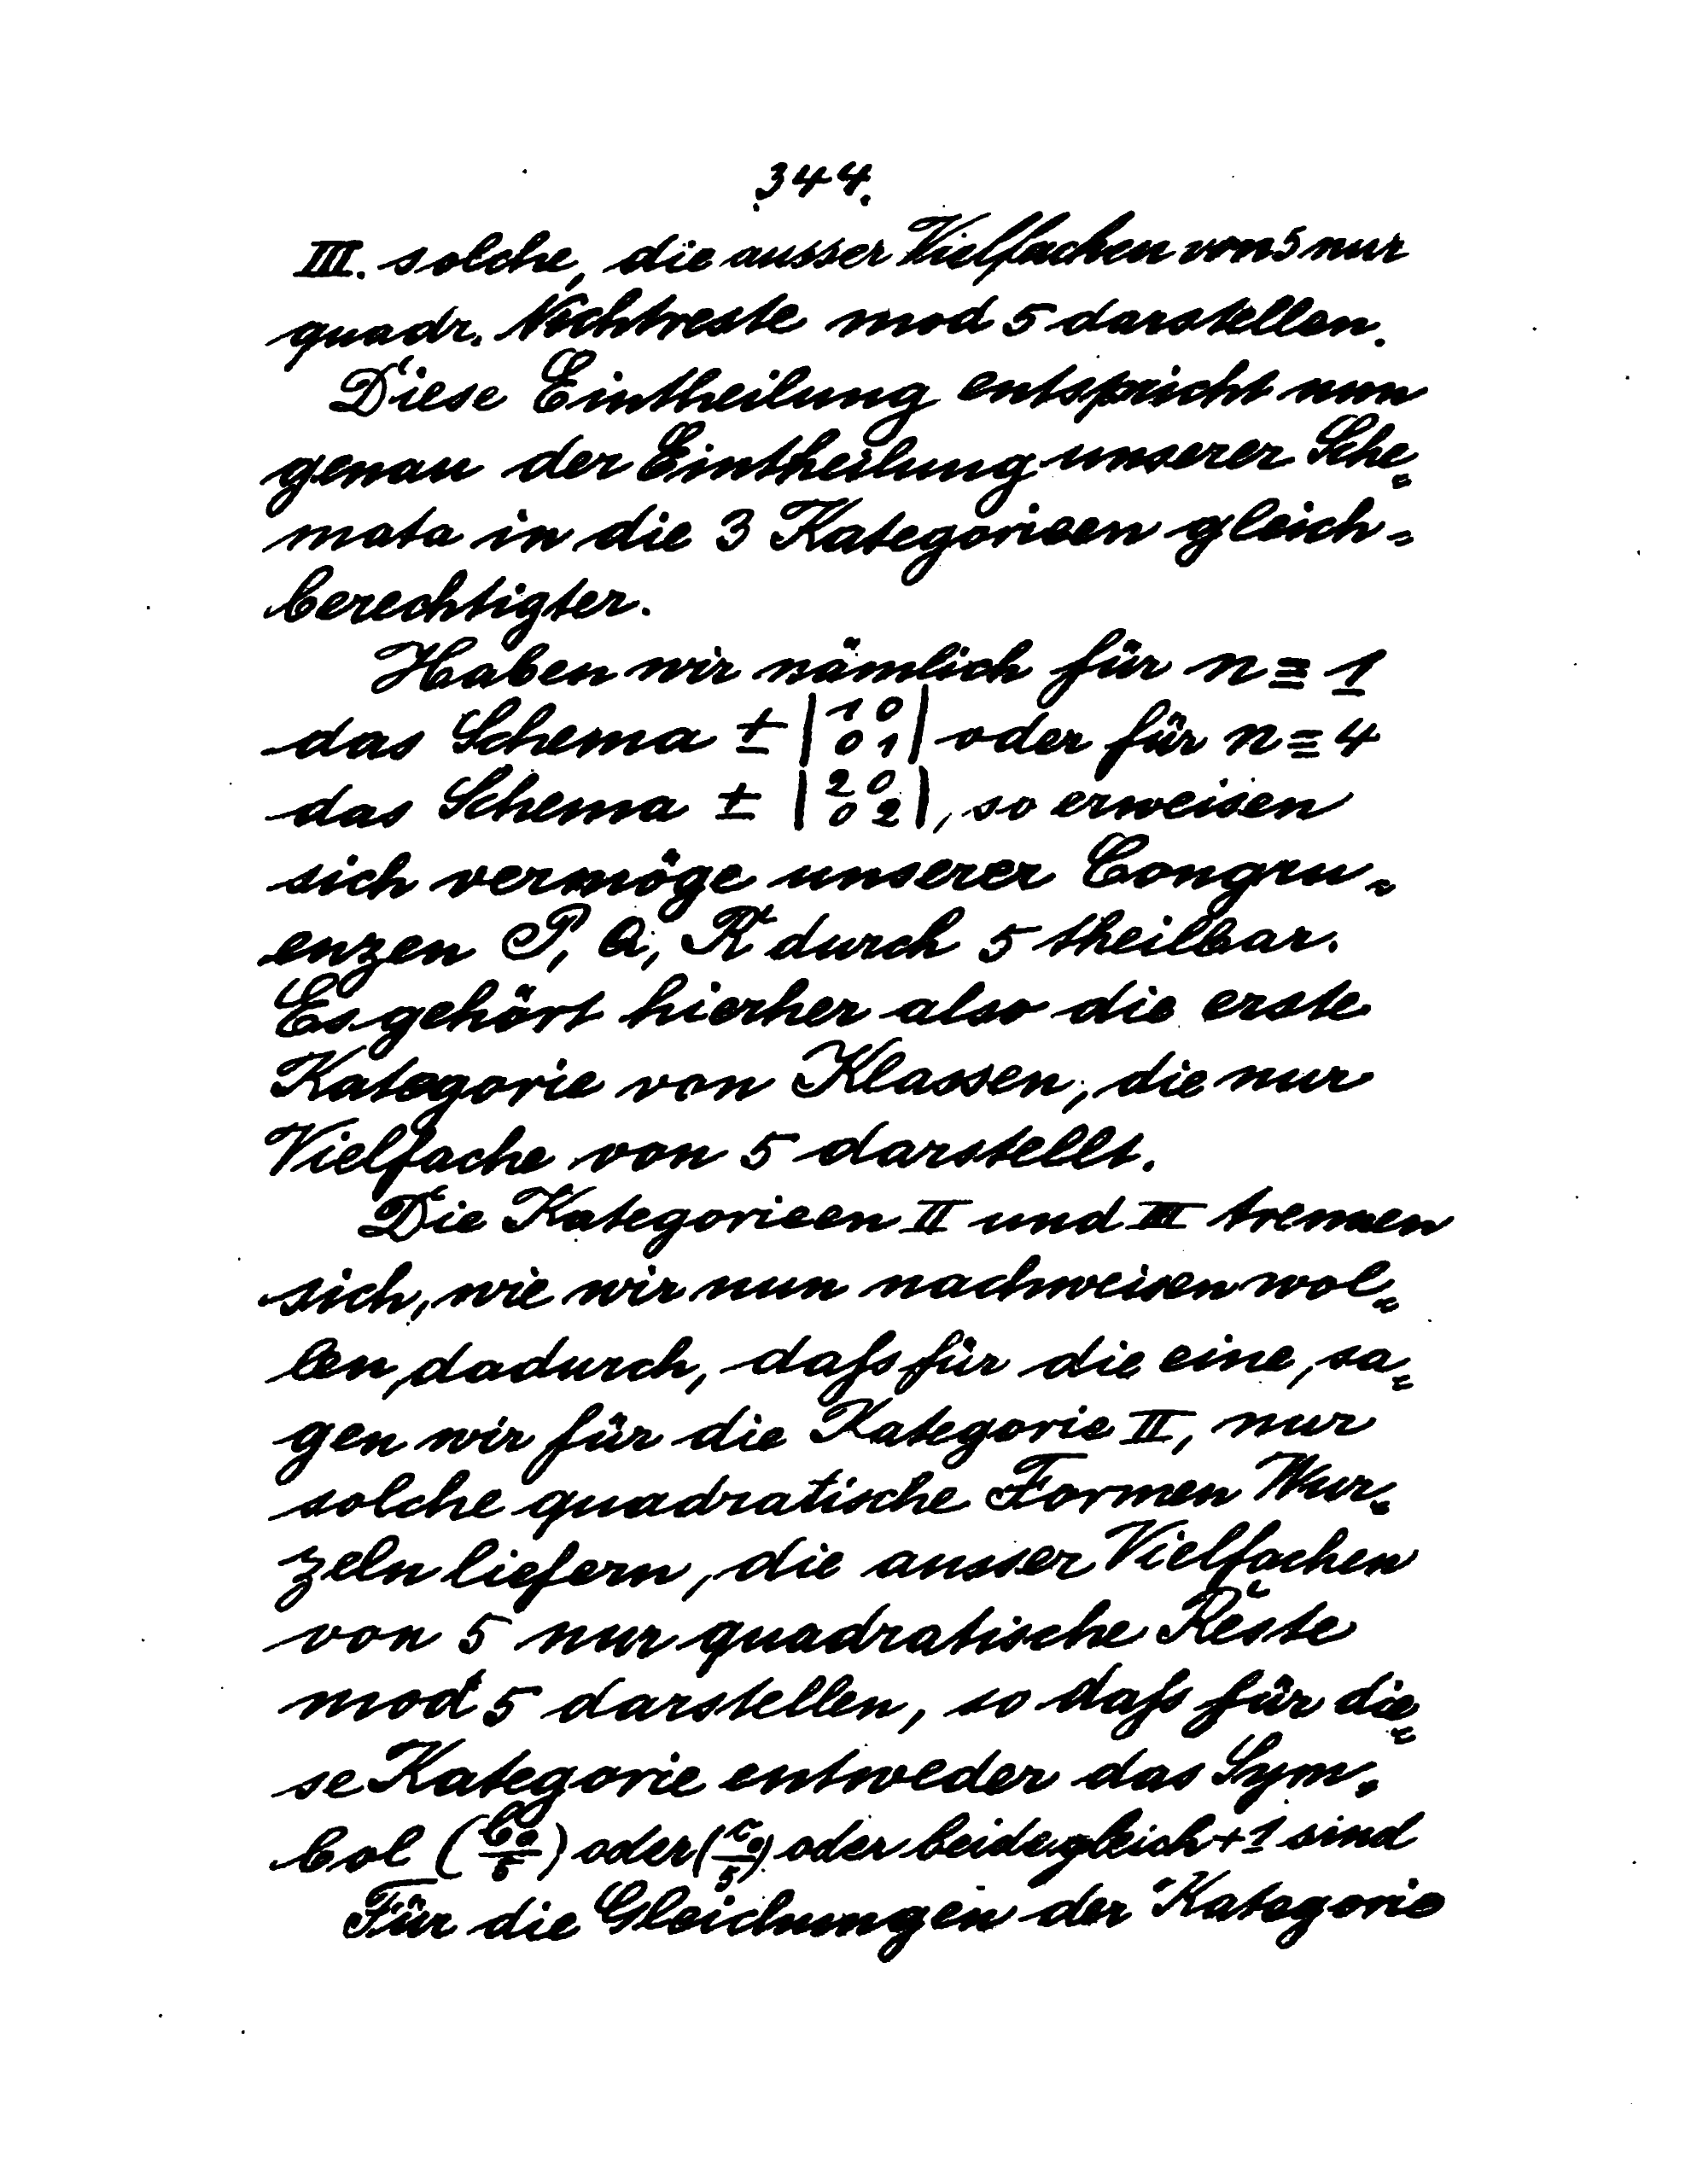 344.
III. solche, die ausser Vielfachen von 5 nur
quadr. Nichtreste mod 5 darstellen.
Diese Eintheilung entspricht nun
genau der Eintheilung unserer Sche=
mata in die 3 Kategorieen gleich=
berechtigter.
Haben wir nämlich für n ≡ 1
das Schema ± |1 0 / 0 1| oder für n ≡ 4
das Schema ± |2 0 / 0 2|, so erweisen
sich vermöge unserer Congru=
enzen P, Q, R durch 5 theilbar.
Es gehört hierher also die erste
Kategorie von Klassen, die nur
Vielfache von 5 darstellt.
Die Kategorieen II und III trennen
sich, wie wir nun nachweisen wol=
len, dadurch, daß für die eine, sa=
gen wir für die Kategorie II, nur
solche quadratische Formen Wur=
zeln liefern, die ausser Vielfachen
von 5 nur quadratische Reste
mod 5 darstellen, so daß für die=
se Kategorie entweder das Sym=
bol (/5) oder (/5) oder beide gleich +1 sind
Für die Gleichungen der Kategorie